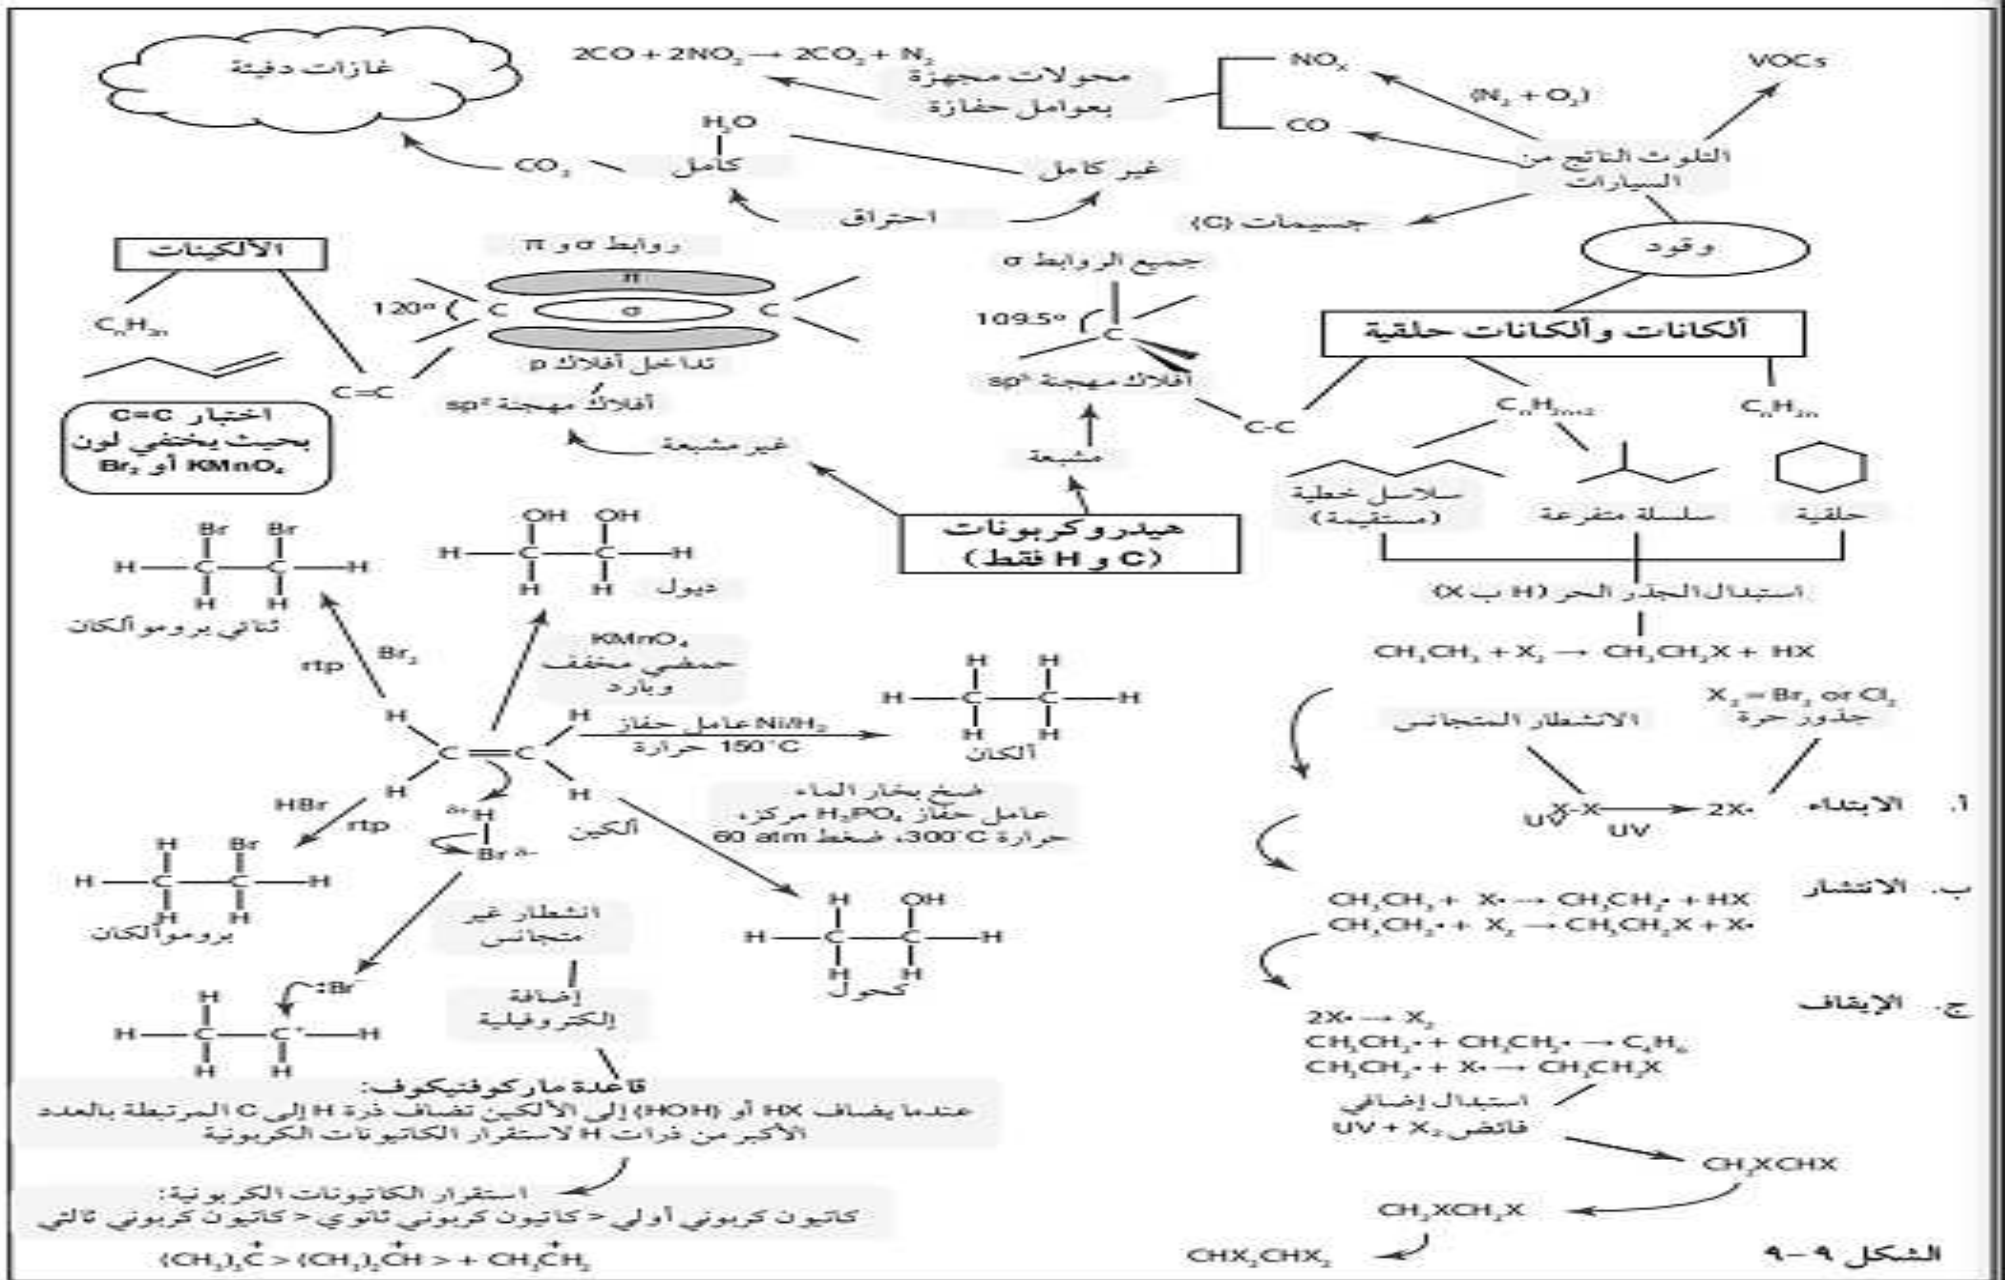 غازات دفيئة
2CO + 2NO₂ → 2CO₂ + N₂
محولات مجهزة
بعوامل حفازة
NOₓ
CO
(N₂ + O₂)
VOCs
التلوث الناتج من
السيارات
جسيمات (C)
وقود
H₂O
CO₂
كامل
غير كامل
احتراق
الألكينات
CₙH₂ₙ
C=C
اختبار C=C
بحيث يختفي لون
KMnO₄ أو Br₂
روابط σ و π
π
σ
120°
C
C
تداخل أفلاك p
أفلاك مهجنة sp²
غير مشبعة
جميع الروابط σ
109.5°
C
أفلاك مهجنة sp³
مشبعة
هيدروكربونات
(C و H فقط)
ألكانات وألكانات حلقية
C-C
CₙH₂ₙ₊₂
CₙH₂ₙ
سلاسل خطية
(مستقيمة)
سلسلة متفرعة
حلقية
استبدال الجذر الحر (H ب X)
CH₃CH₃ + X₂ → CH₃CH₂X + HX
X₂ = Br₂ or Cl₂
الانشطار المتجانس
جذور حرة
أ. الابتداء
X-X → 2X•
UV
UV
ب. الانتشار
CH₃CH₃ + X• → CH₃CH₂• + HX
CH₃CH₂• + X₂ → CH₃CH₂X + X•
ج. الإيقاف
2X• → X₂
CH₃CH₂• + CH₃CH₂• → C₄H₆
CH₃CH₂• + X• → CH₃CH₂X
استبدال إضافي
فائض UV + X₂
CH₃XCHX
CH₂XCH₂X
CHX₂CHX₂
الشكل ٩-٩
Br Br
H C C H
H H
ثنائي بروموألكان
OH OH
H C C H
H H
ديول
KMnO₄
حمضي مخفف
وبارد
Br₂
rtp
H H
C=C
H H
ألكين
عامل حفاز Ni/H₂
حرارة 150°C
H H
H C C H
H H
ألكان
ضخ بخار الماء
عامل حفاز H₃PO₄ مركزه
حرارة 300°C، ضغط 60 atm
H OH
H C C H
H H
كحول
HBr
rtp
H Br
H C C H
H H
بروموألكان
δ+ H
Br δ-
انشطار غير
متجانس
إضافة
إلكتروفيلية
:Br⁻
H
H C C⁺ H
H H
قاعدة ماركوفنيكوف:
عندما يضاف HX أو (HOH) إلى الألكين تضاف ذرة H إلى C المرتبطة بالعدد
الأكبر من ذرات H لاستقرار الكاتيونات الكربونية
استقرار الكاتيونات الكربونية:
كاتيون كربوني أولي < كاتيون كربوني ثانوي < كاتيون كربوني ثالثي
(CH₃)₃C⁺ > (CH₃)₂CH⁺ > + CH₃CH₂⁺